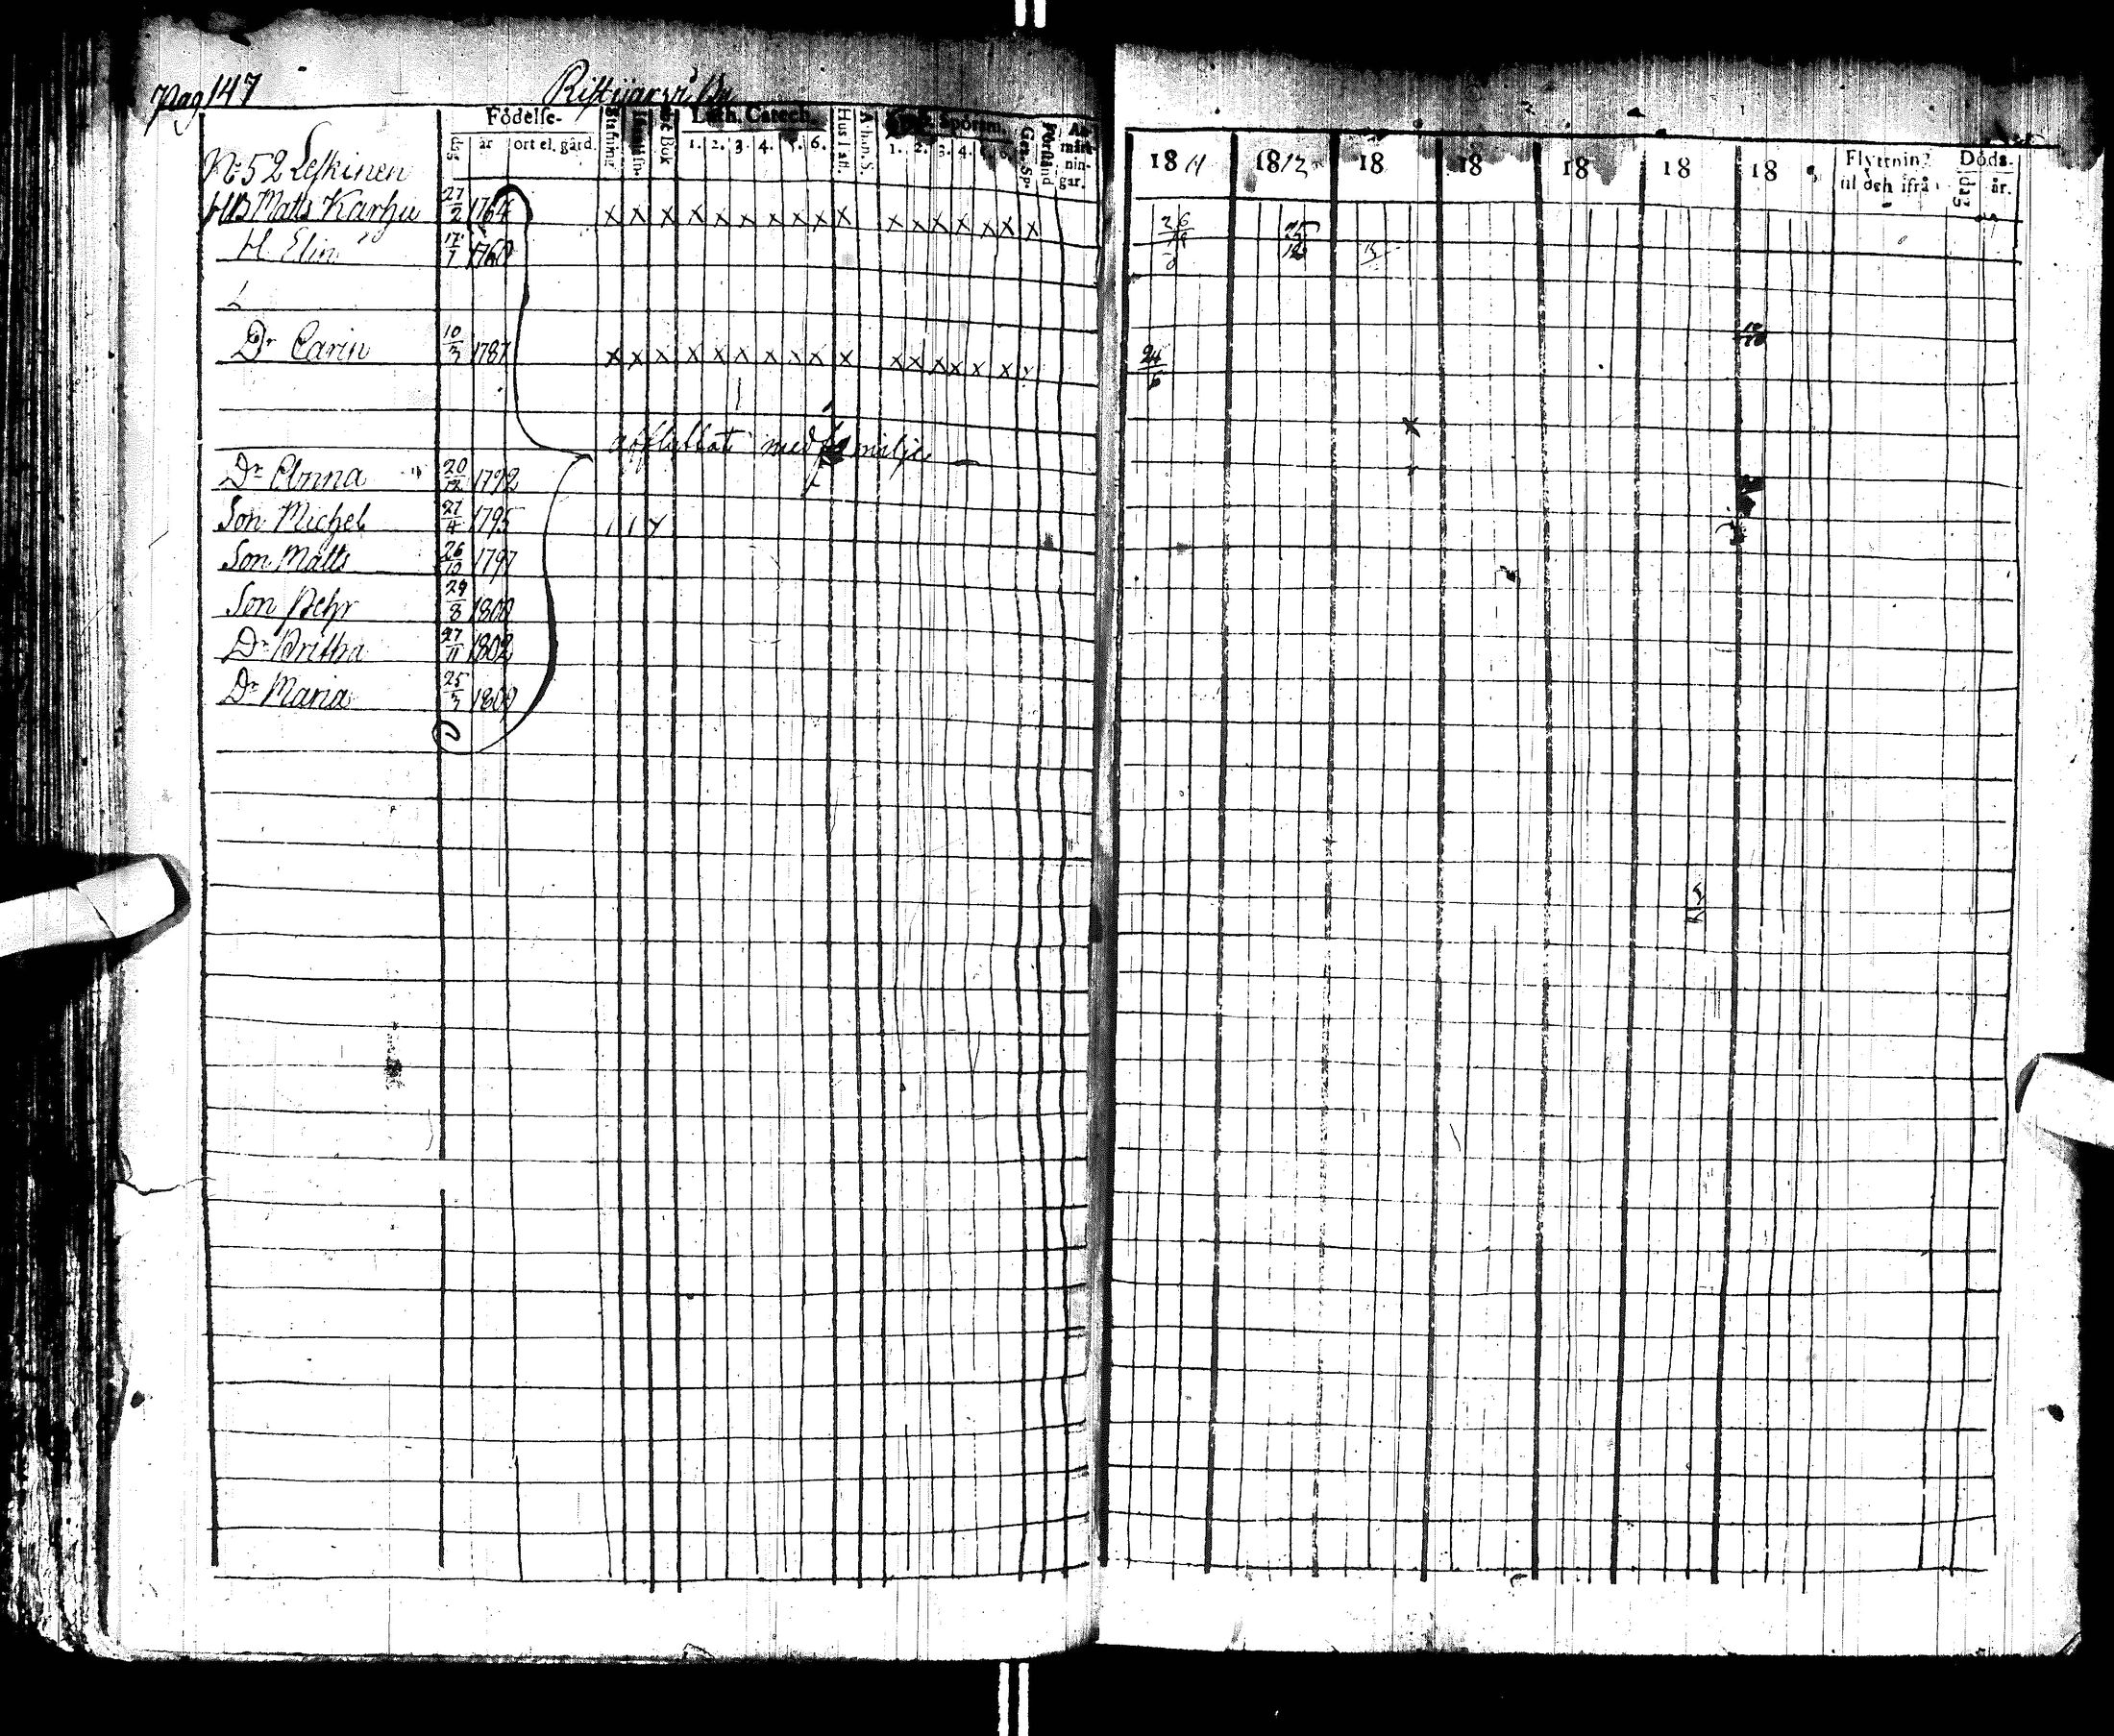 Pag 147
Ristijärvi By
Födelse-
Luth. Catech.
Spörsm.
dag
år
ort el. gård.
Stafning
Bok
1. 2. 3. 4. 5. 6.
Hustafl.
Athan. S.
1. 2. 3. 4. 5. 6.
Gez. Sp.
Förstånd
An-
märk-
nin-
gar.
18 11
18 12
18
18
18
18
18
Flyttning
til och ifrån
Döds-
dag
år.
No 52 Leskinen
HB Matts Karhu 27/2 1764 x x x x x x x x x x x x x x x x x
H. Elin 17/1 1760
Dr Carin 10/3 1787 x x x x x x x x x x x x x x x x x 24/6
afflyttat med familje
Dr Anna 20/12 1792
Son Michel 27/4 1795
Son Matts 26/10 1797
Son Pehr 29/8 1800
Dr Britha 27/11 1802
Dr Maria 25/3 1809